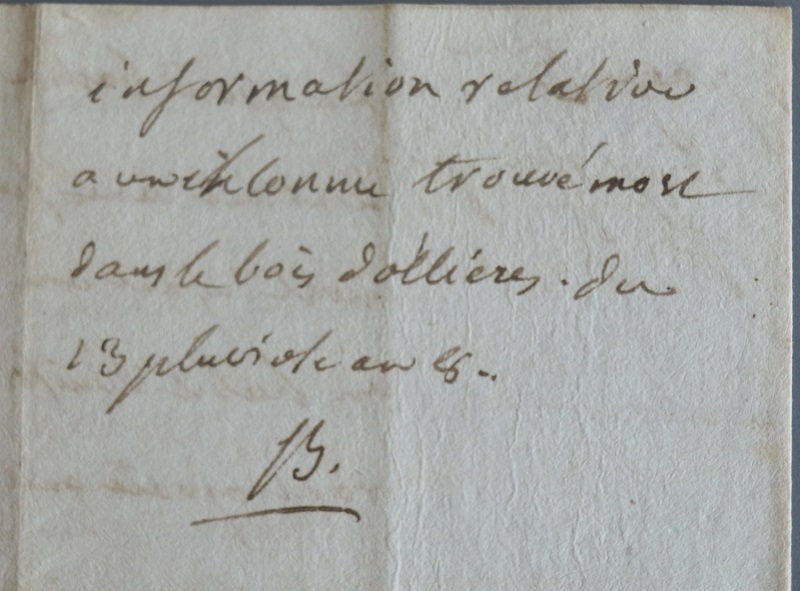 information relative
a un inconnu trouvé mort
dans le bois dollieres. du
13 pluviose an 8.
B.